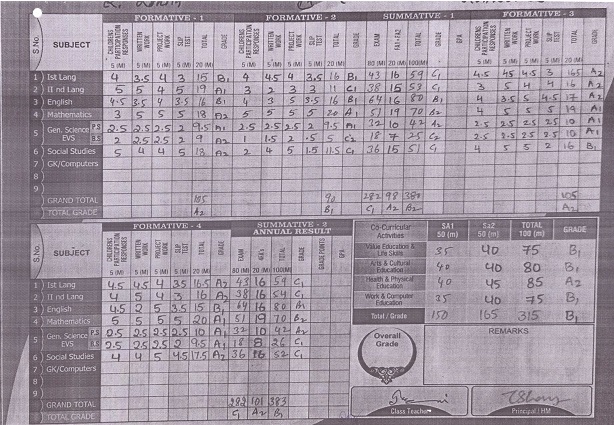 FORMATIVE - 1 FORMATIVE - 2 SUMMATIVE - 1 FORMATIVE - 3
S.No. SUBJECT CHILDRENS PARTICIPATION RESPONSES WRITTEN WORK PROJECT WORK SLIP TEST TOTAL GRADE CHILDRENS PARTICIPATION RESPONSES WRITTEN WORK PROJECT WORK SLIP TEST TOTAL GRADE EXAM FA1+FA2 TOTAL GRADE GPA CHILDRENS PARTICIPATION RESPONSES WRITTEN WORK PROJECT WORK SLIP TEST TOTAL GRADE
5 (M) 5 (M) 5 (M) 5 (M) 20 (M) 5 (M) 5 (M) 5 (M) 5 (M) 20 (M) 80 (M) 20 (M) 100(M) 5 (M) 5 (M) 5 (M) 5 (M) 20 (M)
1 Ist Lang 4 3.5 4 3 15 B1 4 4.5 4 3.5 16 B1 43 16 59 C1 4.5 4.5 4.5 3 16.5 A2
2 II nd Lang 5 5 4 5 19 A1 3 2 3 3 11 C1 38 15 53 C1 3 5 4 4 16 A2
3 English 4.5 3.5 4 3.5 16 B1 4 3 5 3.5 16 B1 64 16 80 B1 4 3.5 5 4.5 17 A2
4 Mathematics 3 5 5 5 18 A2 5 5 5 5 20 A1 51 19 70 B2 4 5 5 5 19 A1
5 Gen. Science P.S 2.5 2.5 2.5 2 9.5 A1 2.5 2.5 2.5 2 9.5 A1 32 10 42 A2 2.5 2.5 2.5 2.5 10 A1
EVS B.S 2 2.5 2.5 2 9 A2 1 1.5 2 .5 5 C2 18 7 25 C2 2.5 2.5 2.5 2.5 10 A1
6 Social Studies 5 4 4 5 18 A2 2 4 5 1.5 11.5 C1 36 15 51 C1 5 5 2 16 B1
7 GK/Computers
8
9
GRAND TOTAL 105 90 282 98 380 105
TOTAL GRADE A2 B1 C1 A2 B2 A2
FORMATIVE - 4 SUMMATIVE - 2 ANNUAL RESULT
S.No. SUBJECT CHILDRENS PARTICIPATION RESPONSES WRITTEN WORK PROJECT WORK SLIP TEST TOTAL GRADE EXAM TOTAL GRADE GRADE POINTS GPA
5 (M) 5 (M) 5 (M) 5 (M) 20 (M) 80 (M) 20 (M) 100(M)
1 Ist Lang 4.5 4.5 4 3.5 16.5 A2 43 16 59 C1
2 II nd Lang 4 5 4 3 16 A2 38 16 54 C1
3 English 4.5 2 5 3.5 15 B1 64 16 80 A1
4 Mathematics 5 5 5 5 20 A1 51 19 70 B2
5 Gen. Science P.S 2.5 2.5 2.5 2.5 10 A1 32 10 42 A2
EVS B.S 2.5 2.5 2.5 2 9.5 A1 18 8 26 C1
6 Social Studies 4 4 5 4.5 17.5 A2 36 16 52 C1
7 GK/Computers
8
9
GRAND TOTAL 282 101 383
TOTAL GRADE C1 A2 B1
Co-Curricular Activities SA1 50 (m) Sa2 50 (m) TOTAL 100 (m) GRADE
Value Education & Life Skills 35 40 75 B1
Arts & Cultural Education 40 40 80 B1
Health & Physical Education 40 45 85 A2
Work & Computer Education 35 40 75 B1
Total / Grade 150 165 315 B1
Overall Grade
REMARKS
Class Teacher
Principal / HM